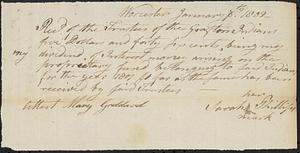 Worcester January 8th 1802
Recd of the Trustees of the Grafton Indians
five Dollars and forty six cents being my
dividend of Interest money arising on the
proprietary fund belonging to said Indians
for the year 1801 so far as the same has been
received by said Trustees
her
Attest Mary Goddard Sarah Phillips
mark